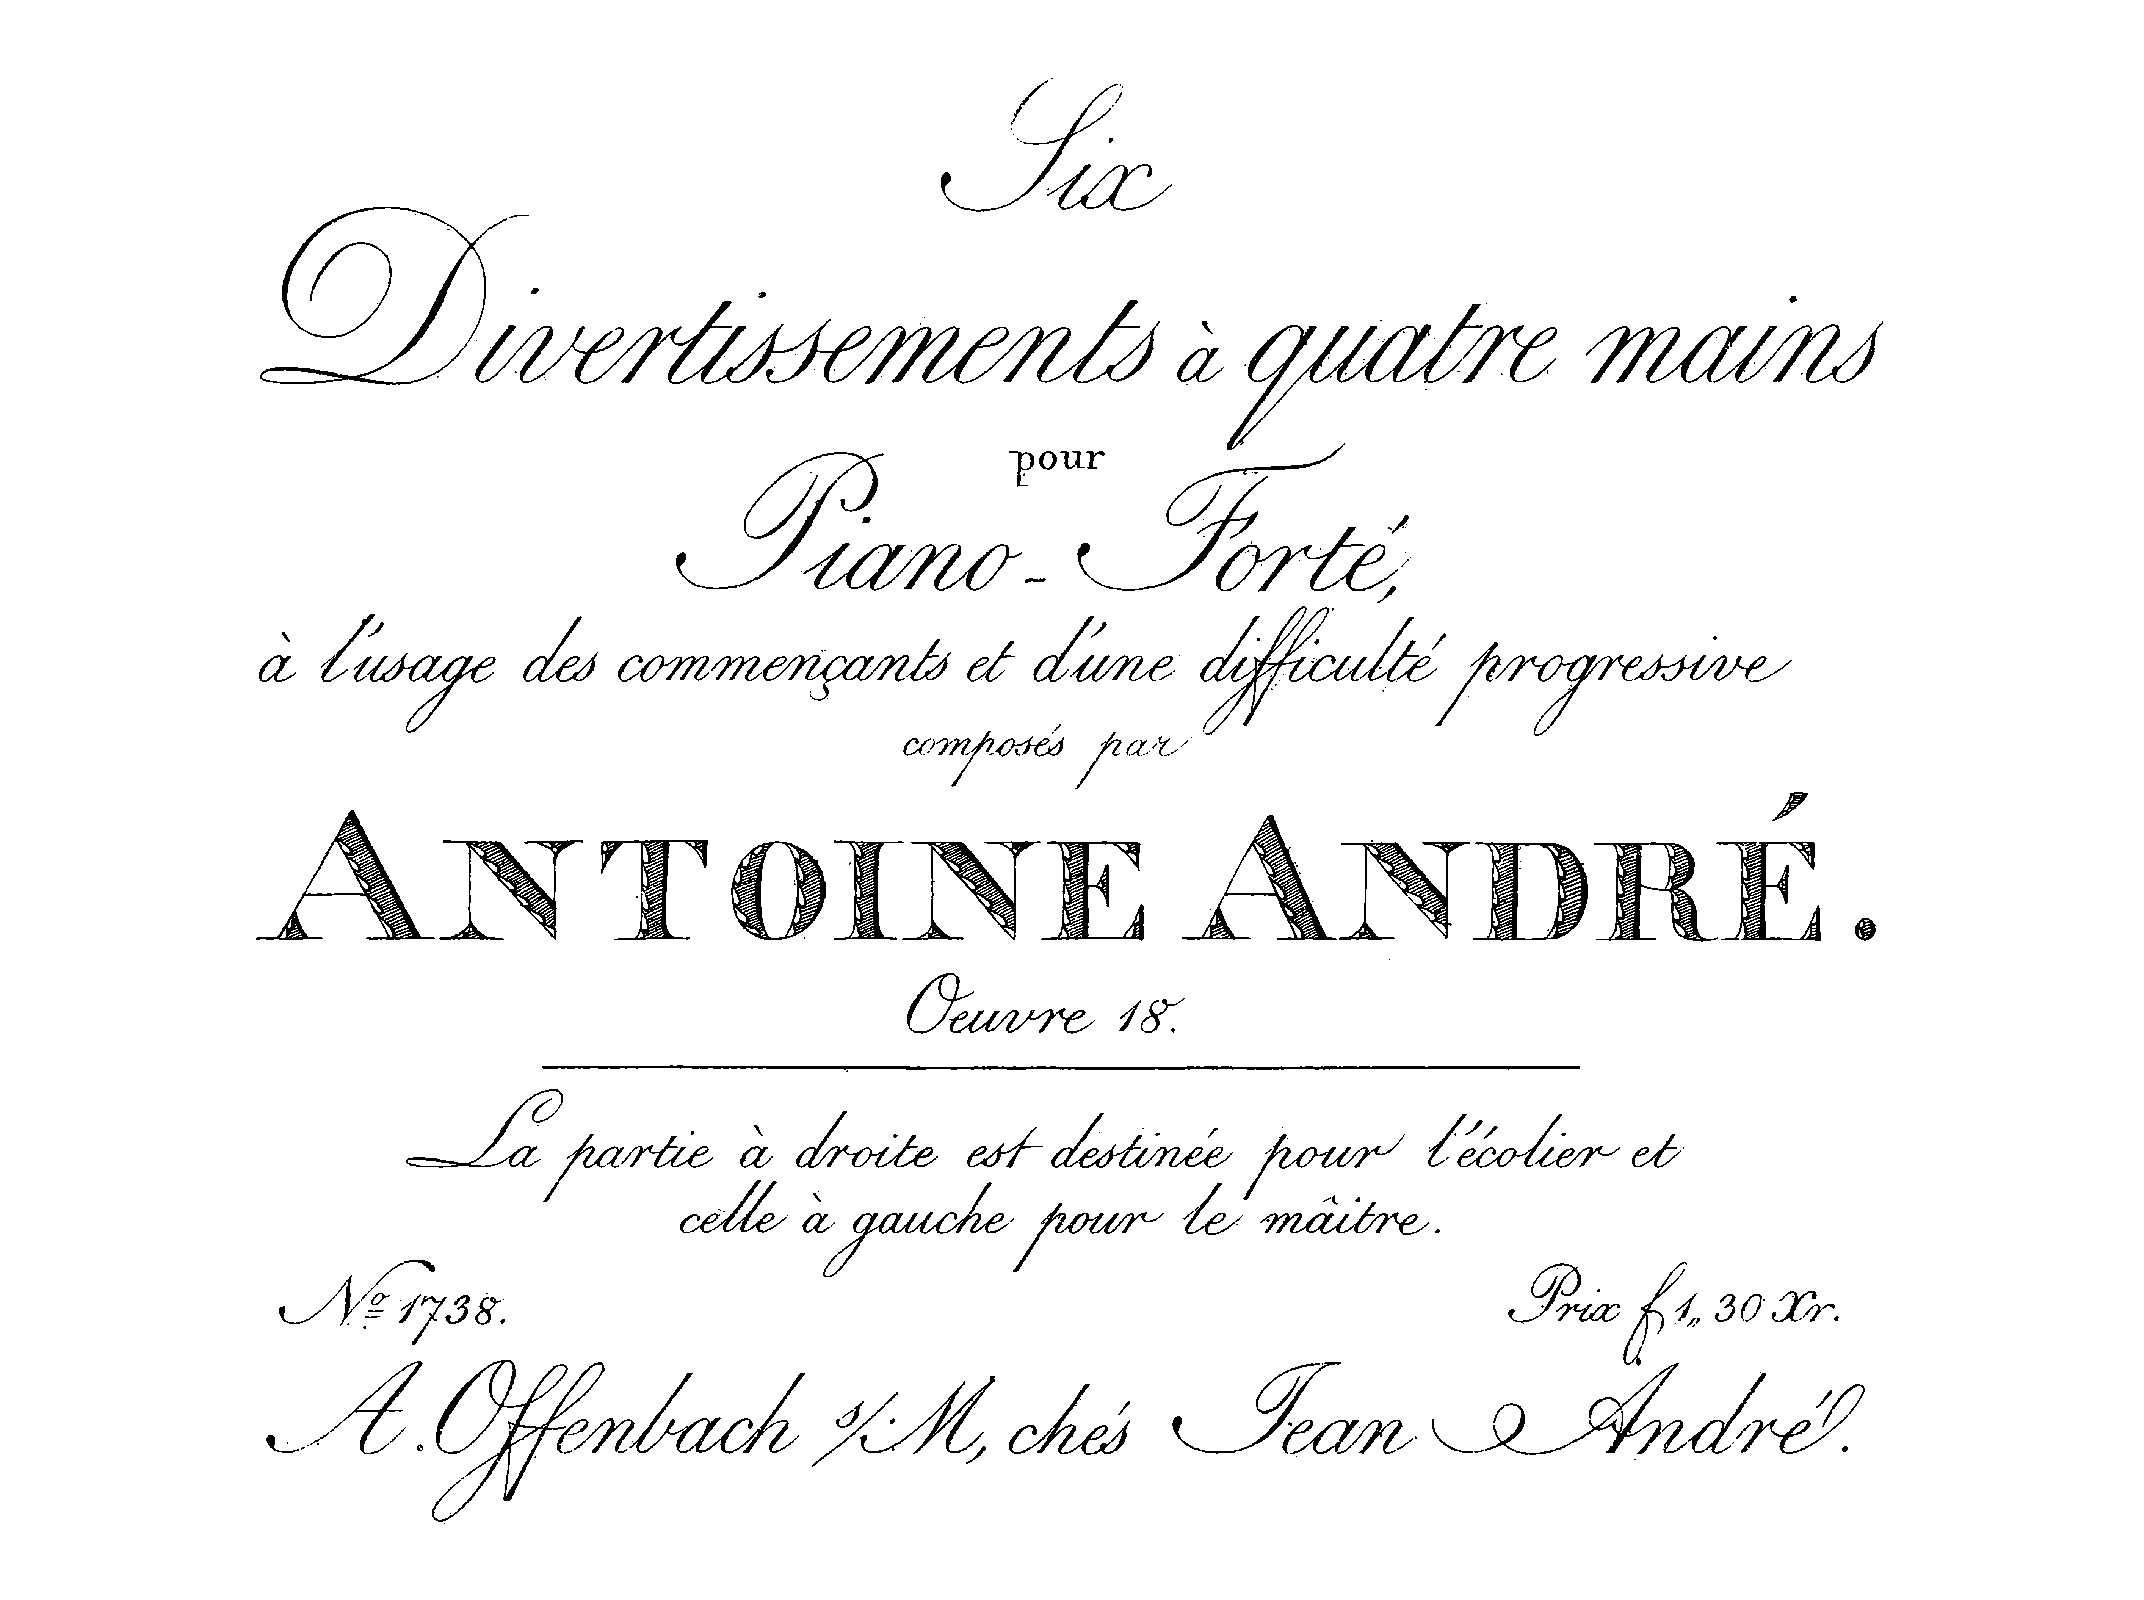 Six
Divertissements à quatre mains
pour
Piano-Forté,
à l'usage des commençants et d'une difficulté progressive
composés par
ANTOINE ANDRÉ.
Oeuvre 18.
La partie à droite est destinée pour l'écolier et
celle à gauche pour le mâitre.
Nº 1738. Prix f 1„ 30 Xr.
A. Offenbach s/M, chés Jean André.